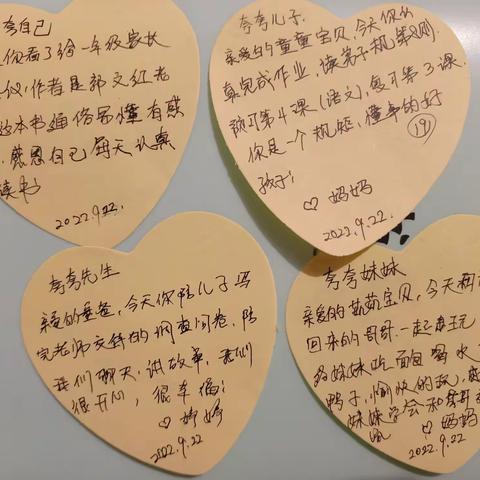 夸夸自己
你看了给一年级家长
仪,作者是郭文红老
这本书通俗易懂有感
感恩自己每天认真
读书
2022.9.22.
夸夸儿子.
亲爱的童童宝贝,今天你认
真完成作业,读弟子规第8则.
预习第4课(语文),复习第3课.
你是一个机灵,懂事的好
孩子!
(19)
♡ 妈妈
2022.9.22.
夸夸先生
亲爱的童爸,今天你陪儿子写
完老师交待的调查问卷,陪
我们聊天,讲故事,我们
很开心,很幸福!
♡ 婷婷
2022.9.22
夸夸妹妹
亲爱的茹茹宝贝,今天和
回来的哥哥一起捉迷
妹妹吃面包喝水
鸭子,愉快的玩,
妹妹学会和哥哥
♡ 妈妈
2022.9.22